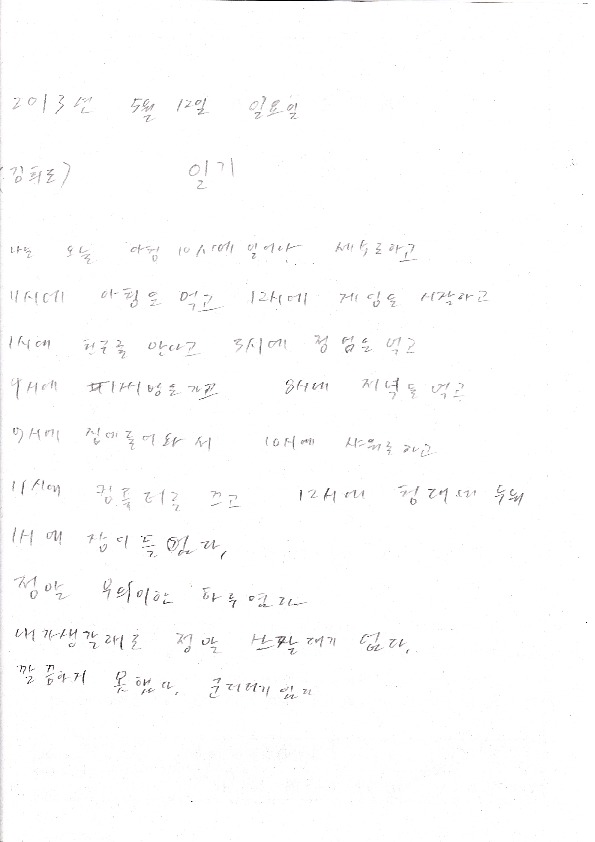 2013년 5월 12일 일요일
(김희도) 일기
나는 오늘 아침 10시에 일어나 세수를하고
11시에 아침을 먹고 12시에 게임을 시작하고
1시에 친구를 만나고 3시에 점심을 먹고
4시에 피시방을 가고 8시에 저녁을 먹고
9시에 집에들어와서 10시에 샤워를 하고
11시에 컴퓨터를 끄고 12시에 침대에 누워
1시에 잠이 들었다,
정말 무의미한 하루 였다
내가생각해도 정말 쓰잘대기 없다,
깔끔하게 못했다,